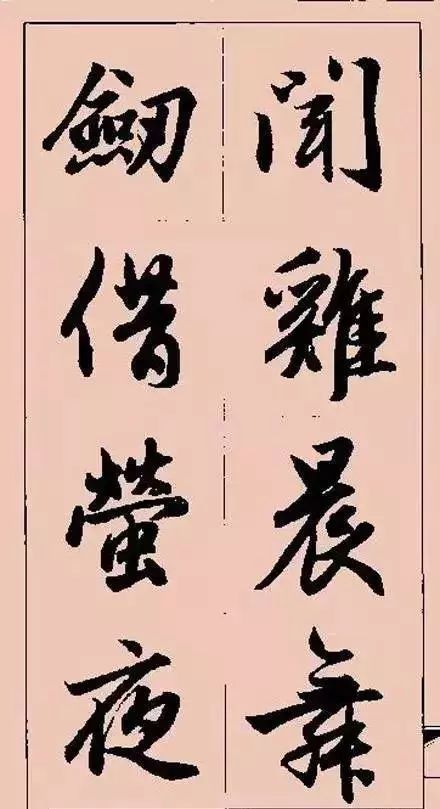 聞雞晨舞
劔借螢夜